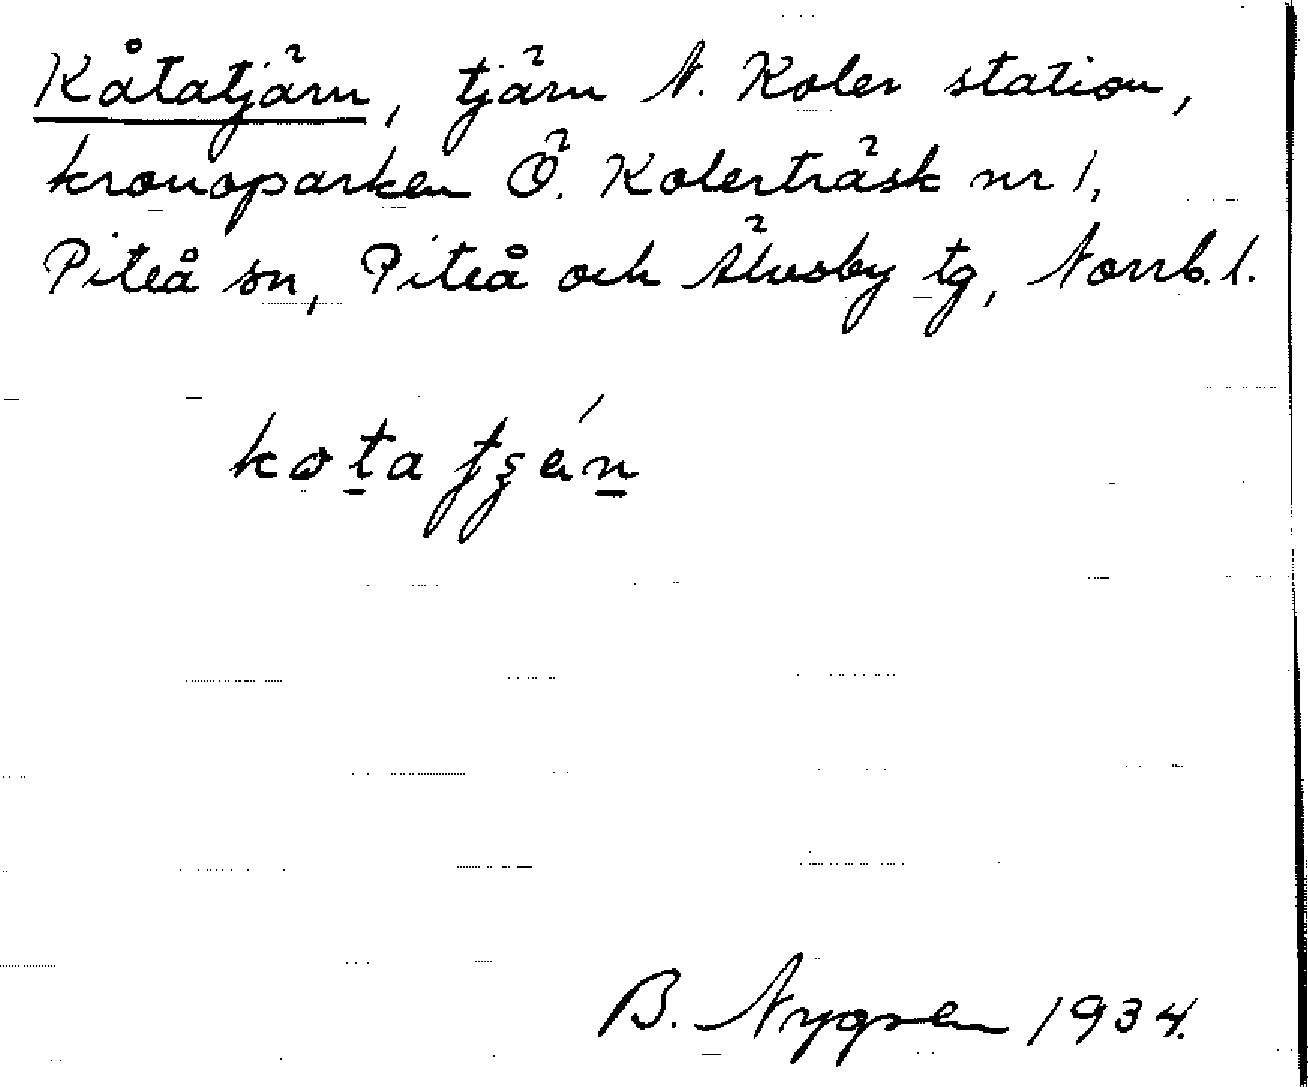 Kåtatjärn, tjärn N. Koler station,
kronoparken Ö. Kolerträsk nr 1,
Piteå sn, Piteå och Älvsby tg, Norrb. l.
B. Nygren 1934.